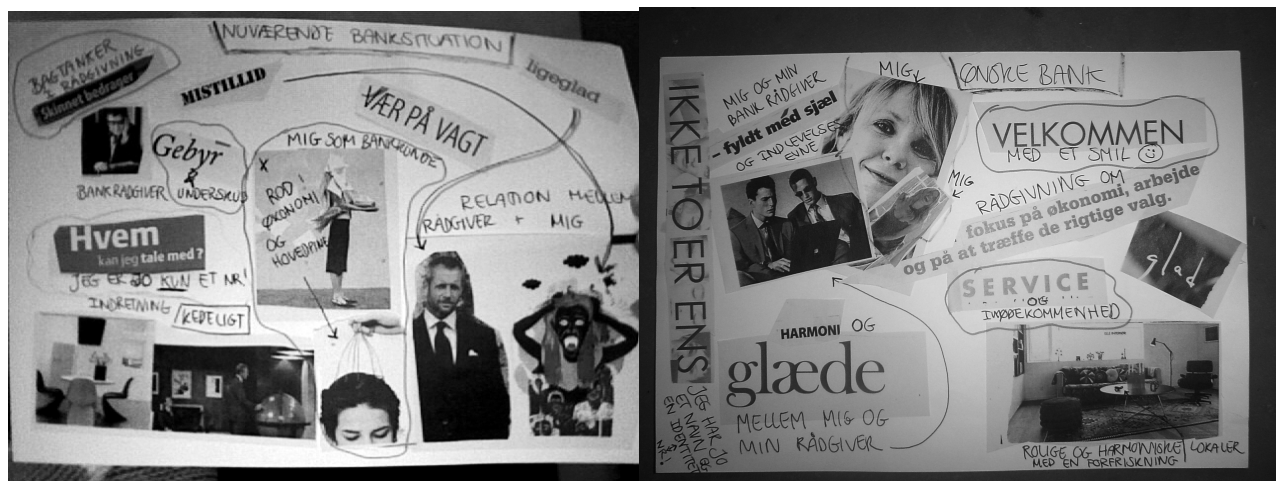 NUVÆRENDE BANKSITUATION
BAGTANKER
I RÅDGIVNING
Skinnet bedrager
MISTILLID
ligeglad
VÆR PÅ VAGT
Gebyr
&
UNDERSKUD
BANKRÅDGIVER
MIG SOM BANKKUNDE
ROD I
ØKONOMI
OG
HOVEDPINE
RELATION MELLEM
RÅDGIVER + MIG
Hvem
kan jeg tale med?
JEG ER JO KUN ET NR!
INDRETNING
KEDELIGT
IKKE TO ER ENS
JEG HAR JO
ET NAVN OG
EN IDENTITET
NR!
MIG OG MIN
BANK RÅDGIVER
- fyldt med sjæl
OG INDLEVELSES
EVNE
MIG
ØNSKE BANK
VELKOMMEN
MED ET SMIL ☺
MIG
RÅDGIVNING OM
fokus på økonomi, arbejde
og på at træffe de rigtige valg.
glad
SERVICE
OG
IMØDEKOMMENHED
HARMONI OG
glæde
MELLEM MIG OG
MIN RÅDGIVER
ROLIGE OG HARMONISKE LOKALER
MED EN FORFRISKNING